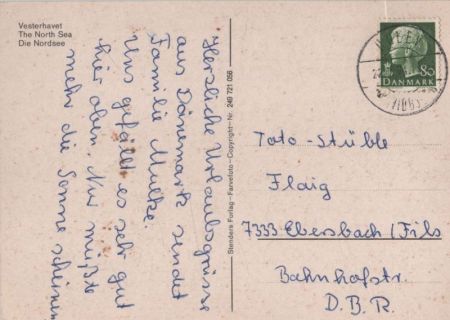 Vesterhavet
The North Sea
Die Nordsee
Herzliche Urlaubsgrüsse
aus Dänemark sendet
Familie
Uns gefällt es sehr gut
hier oben. Nur müßte
mehr die Sonne scheinen
Stenders Forlag - Farvefoto - Copyright - Nr. 249 721 056
80
DANMARK
Foto-Stüble
Flaig
7333 Ebersbach/Fils
Bahnhofstr.
D.B.R.